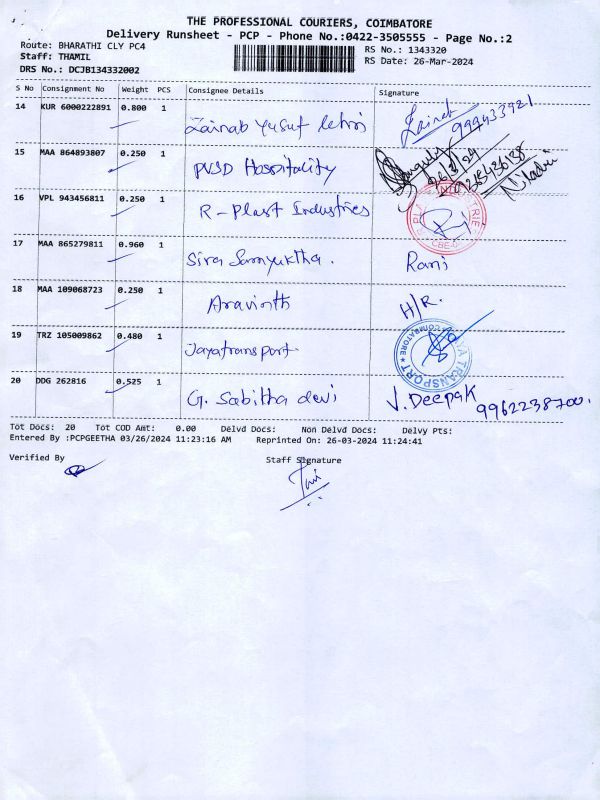 THE PROFESSIONAL COURIERS, COIMBATORE
Delivery Runsheet - PCP - Phone No.:0422-3505555 - Page No.:2
Route: BHARATHI CLY PC4 RS No.: 1343320
Staff: THAMIL RS Date: 26-Mar-2024
DRS No.: DCJB134332002
S No Consignment No Weight PCS Consignee Details Signature
14 KUR 6000222891 0.800 1 Zainab Yusuf Lehri Zainab
15 MAA 864893807 0.250 1 PVSD Hospitality
16 VPL 943456811 0.250 1 R-Plast Industries
17 MAA 865279811 0.960 1 Siva Samyuktha. Rani
18 MAA 109068723 0.250 1 Aravinth H/R.
19 TRZ 105009862 0.480 1 Jayatransport
COIMBATORE TRANSPORT
20 DDG 262816 0.525 1 G. Sabitha devi J. Deepak 9962238700.
Tot Docs: 20 Tot COD Amt: 0.00 Delvd Docs: Non Delvd Docs: Delvy Pts:
Entered By :PCPGEETHA 03/26/2024 11:23:16 AM Reprinted On: 26-03-2024 11:24:41
Verified By Staff Signature